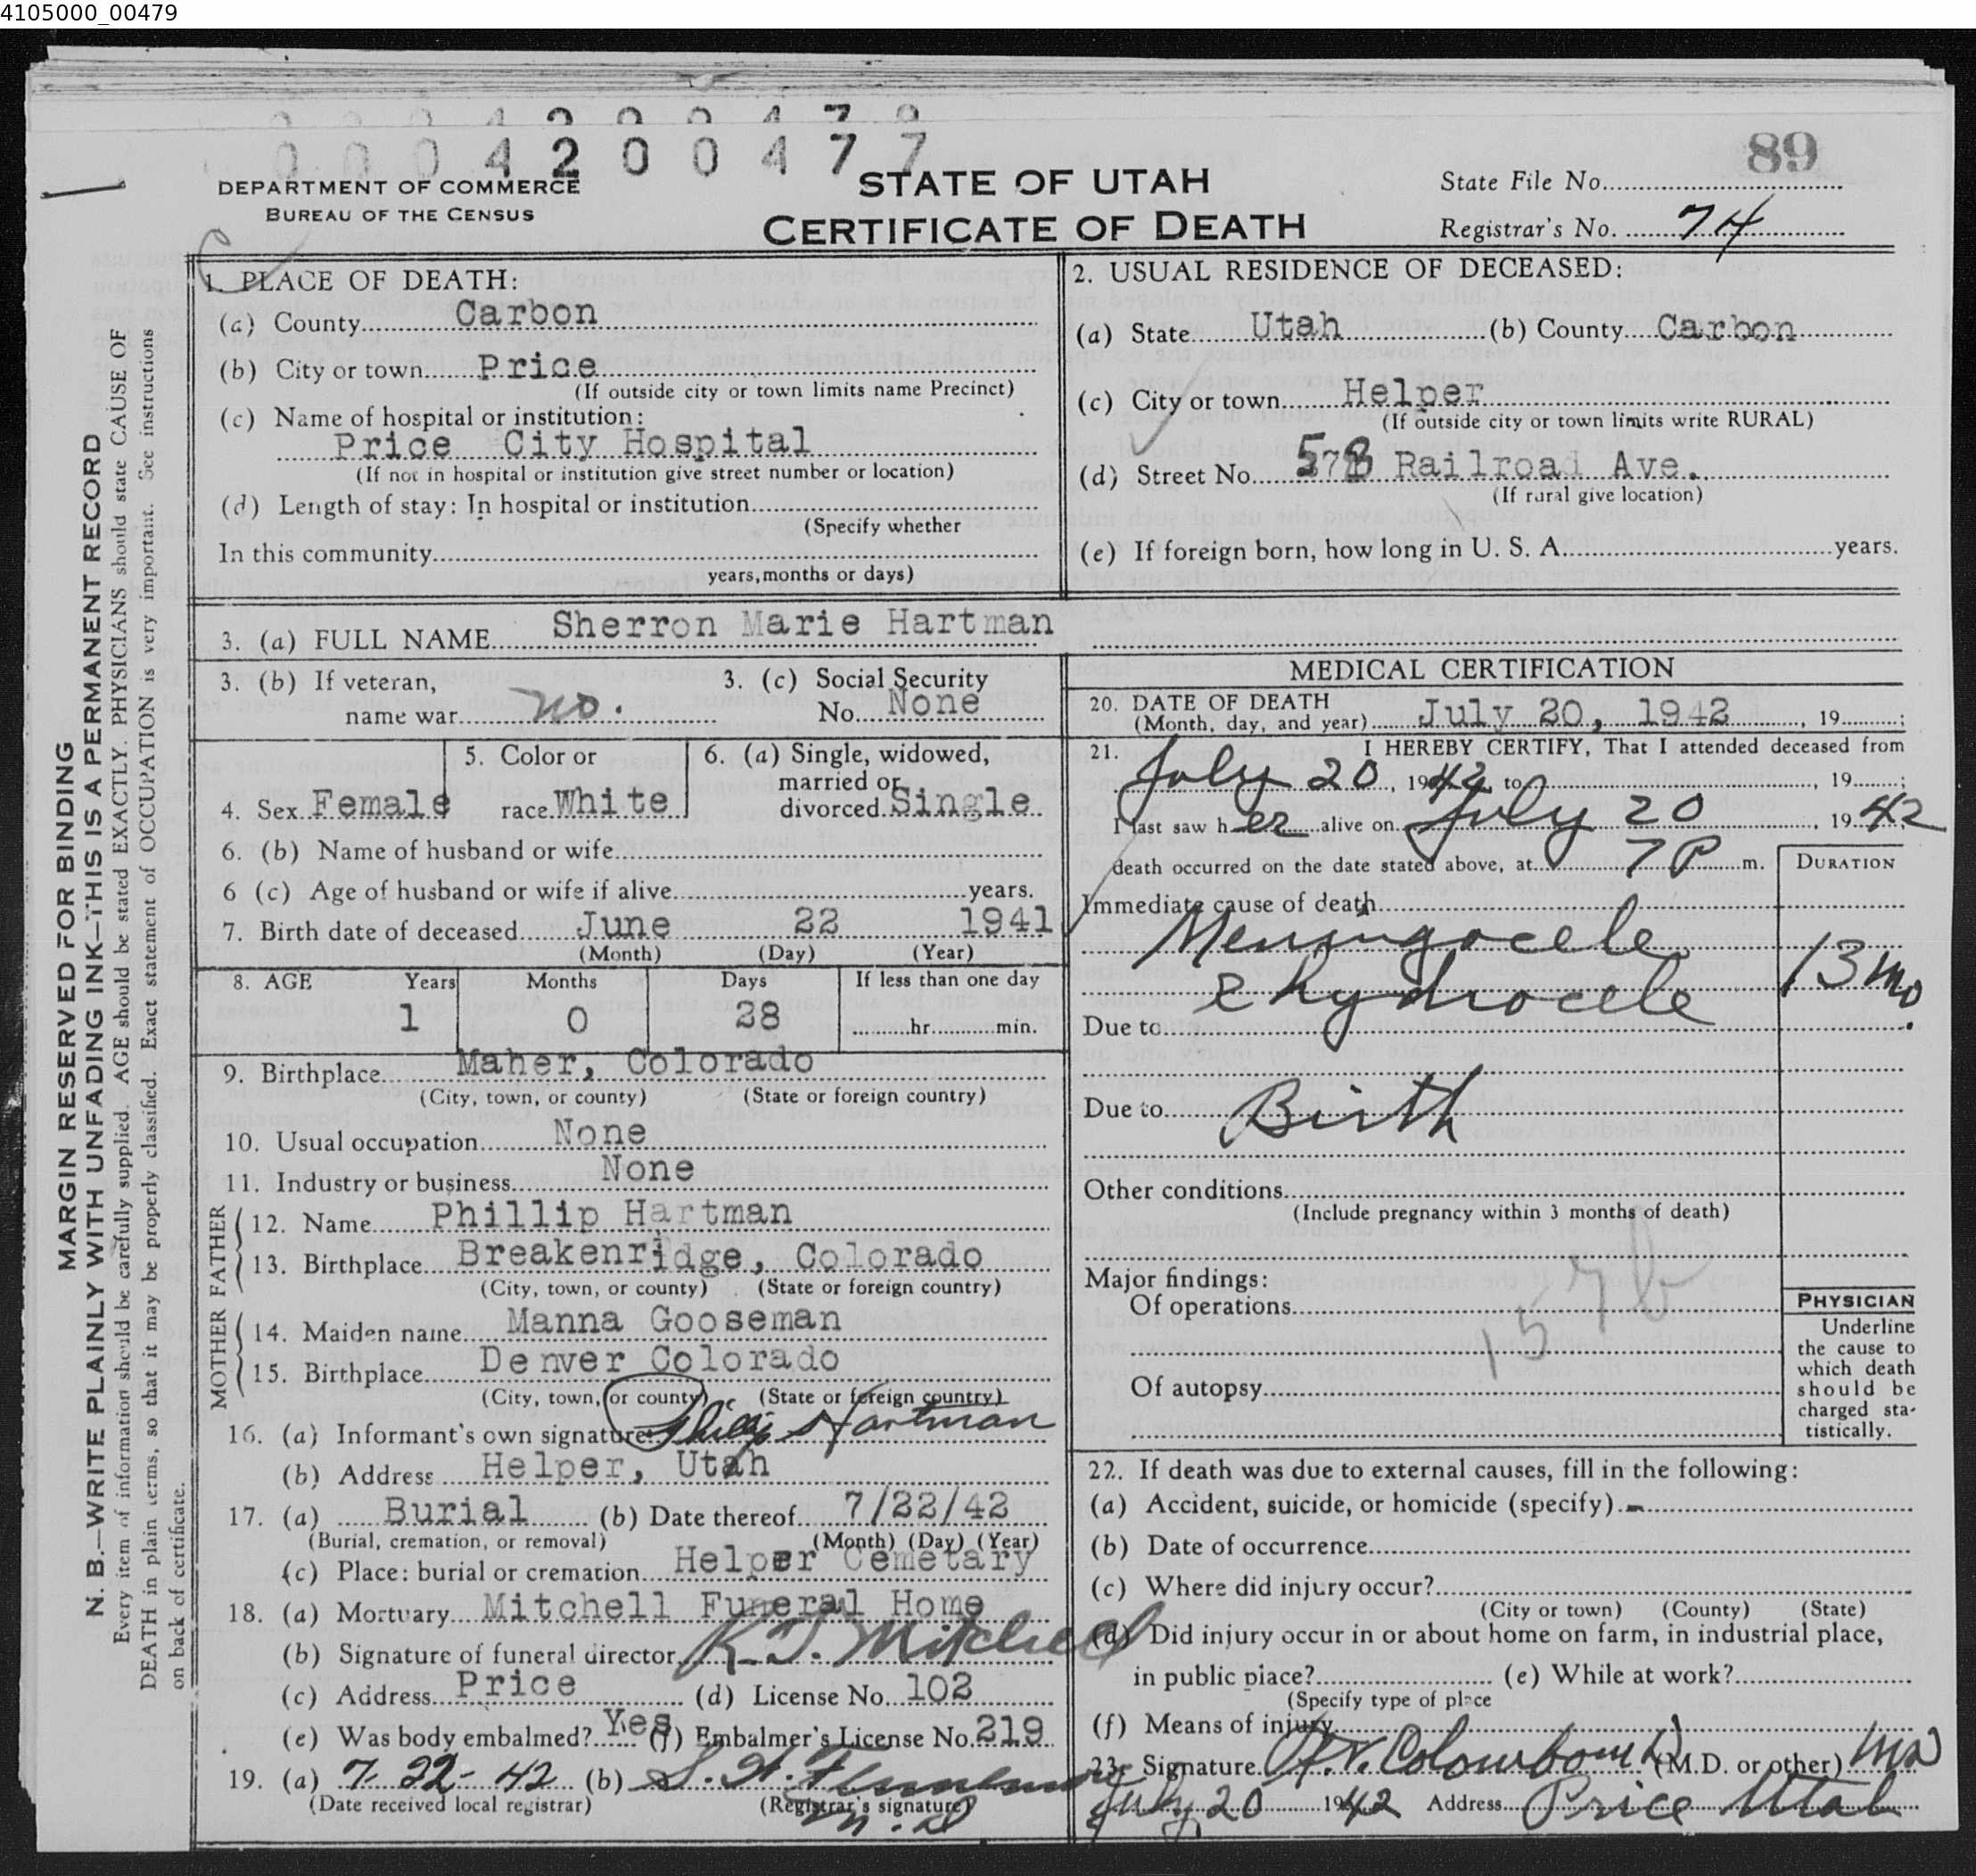 4105000_00479
0004200477
89
DEPARTMENT OF COMMERCE
BUREAU OF THE CENSUS
STATE OF UTAH
CERTIFICATE OF DEATH
State File No.
Registrar's No. 74
1. PLACE OF DEATH:
(a) County Carbon
(b) City or town Price
(If outside city or town limits name Precinct)
(c) Name of hospital or institution:
Price City Hospital
(If not in hospital or institution give street number or location)
(d) Length of stay: In hospital or institution
(Specify whether
In this community
years, months or days)
2. USUAL RESIDENCE OF DECEASED:
(a) State Utah (b) County Carbon
(c) City or town Helper
(If outside city or town limits write RURAL)
(d) Street No. Railroad Ave.
(If rural give location)
(e) If foreign born, how long in U. S. A. years.
3. (a) FULL NAME Sherron Marie Hartman
3. (b) If veteran,
name war no.
3. (c) Social Security
No. None
4. Sex Female
5. Color or
race White
6. (a) Single, widowed,
married or
divorced Single
6. (b) Name of husband or wife
6 (c) Age of husband or wife if alive years.
7. Birth date of deceased June 22 1941
(Month) (Day) (Year)
8. AGE Years Months Days If less than one day
1 0 28 hr. min.
9. Birthplace Maher, Colorado
(City, town, or county) (State or foreign country)
10. Usual occupation None
11. Industry or business None
FATHER
12. Name Phillip Hartman
13. Birthplace Breakenridge, Colorado
(City, town, or county) (State or foreign country)
MOTHER
14. Maiden name Manna Gooseman
15. Birthplace Denver Colorado
(City, town, or county) (State or foreign country)
16. (a) Informant's own signature Phillip Hartman
(b) Address Helper, Utah
17. (a) Burial (b) Date thereof 7/22/42
(Burial, cremation, or removal) (Month) (Day) (Year)
(c) Place: burial or cremation Helper Cemetary
18. (a) Mortuary Mitchell Funeral Home
(b) Signature of funeral director Mitchell
(c) Address Price (d) License No. 102
(e) Was body embalmed? Yes (f) Embalmer's License No. 219
19. (a) 7-22-42 (b)
(Date received local registrar) (Registrar's signature)
M.D
MEDICAL CERTIFICATION
20. DATE OF DEATH
(Month, day, and year) July 20, 1942, 19 ;
21. I HEREBY CERTIFY, That I attended deceased from
July 20, 1942 to , 19 ;
I last saw her alive on July 20, 1942;
death occurred on the date stated above, at 7 P m.
DURATION
Immediate cause of death
Meningocele
c hydrocele
13 mo.
Due to
Due to Birth
Other conditions
(Include pregnancy within 3 months of death)
157b
Major findings:
Of operations
Of autopsy
PHYSICIAN
Underline
the cause to
which death
should be
charged sta-
tistically.
22. If death was due to external causes, fill in the following:
(a) Accident, suicide, or homicide (specify)
(b) Date of occurrence
(c) Where did injury occur?
(City or town) (County) (State)
(d) Did injury occur in or about home on farm, in industrial place,
in public place? (e) While at work?
(Specify type of place
(f) Means of injury
23. Signature (M.D. or other) MD
July 20 1942 Address Price Utah
MARGIN RESERVED FOR BINDING
N. B.—WRITE PLAINLY WITH UNFADING INK—THIS IS A PERMANENT RECORD
Every item of information should be carefully supplied. AGE should be stated EXACTLY. PHYSICIANS should state CAUSE OF
DEATH in plain terms, so that it may be properly classified. Exact statement of OCCUPATION is very important. See instructions
on back of certificate.